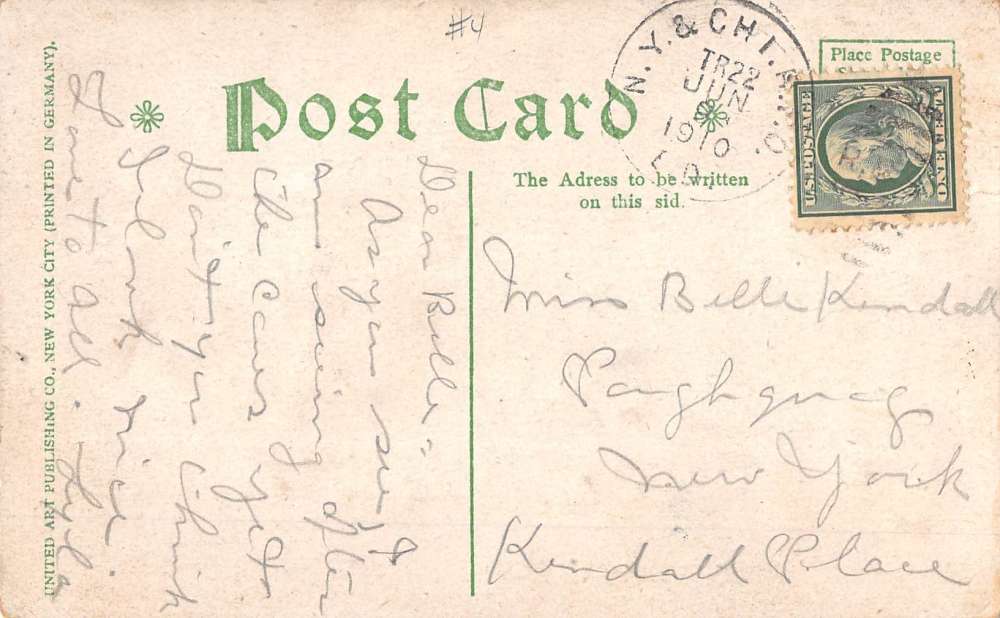 #4
N.Y. & CHI. R.P.O.
TR22
JUN
1910
Place Postage
Post Card
The Adress to be written
on this sid.
U.S. POSTAGE
ONE CENT
UNITED ART PUBLISHING CO., NEW YORK CITY (PRINTED IN GERMANY).
Dear Belle:-
As you see I
am seeing after
the Cows yet.
Don't you think
I look nice.
Love to All.
Miss Belle Kendall
Poughquag
New York
Kendall Place